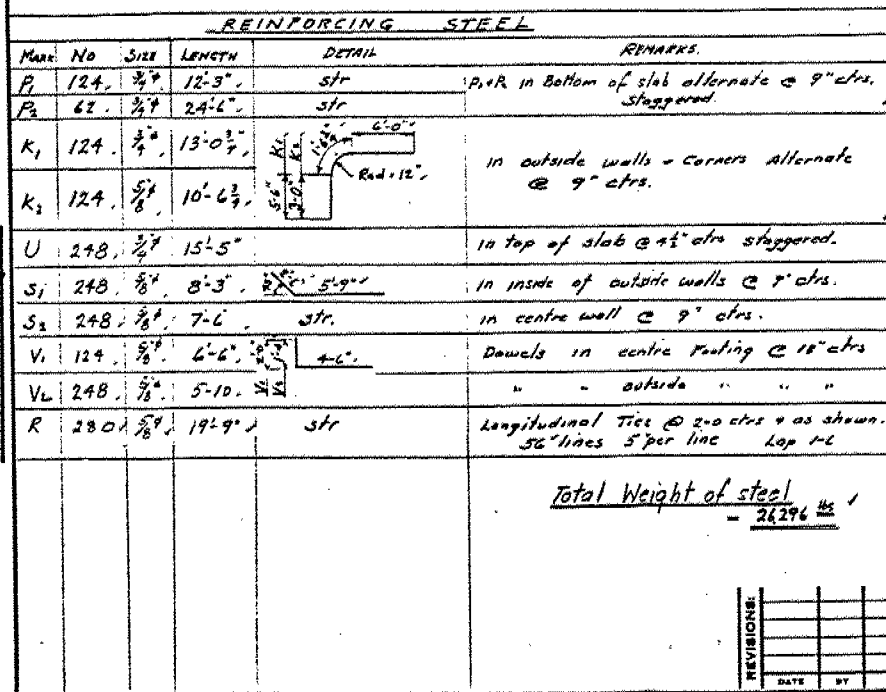 REINFORCING STEEL
MARK No SIZE LENGTH DETAIL REMARKS.
P1 124. 3/4"φ 12'-3". str P1+P2 in Bottom of slab alternate @ 9" ctrs.
staggered.
P2 62. 3/4"φ 24'-6". str
K1 124. 3/4"φ 13'-0 3/4" in outside walls + Corners Alternate
@ 9" ctrs.
K2 124. 5/8"φ 10'-6 3/4"
K1 K2 6'-0" Rad = 12" 5'-6" 3'-0"
U 248. 3/4"φ 15'-5" in top of slab @ 4 1/2" ctrs staggered.
S1 248. 5/8"φ 8'-3". 5'-9" in inside of outside walls @ 9" ctrs.
S2 248. 5/8"φ 7'-6 str. in centre wall @ 9" ctrs.
V1 124. 5/8"φ 6'-6". 4'-6". Dowels in centre Footing @ 18" ctrs
V2 248. 5/8"φ 5'-10. V1 V2 " " outside " " "
R 280. 5/8"φ 19'-9" str Longitudinal Ties @ 2'-0 ctrs + as shown.
56 lines 5 per line Lap 1'-6
Total Weight of steel
= 26,296 lbs
REVISIONS:
DATE BY